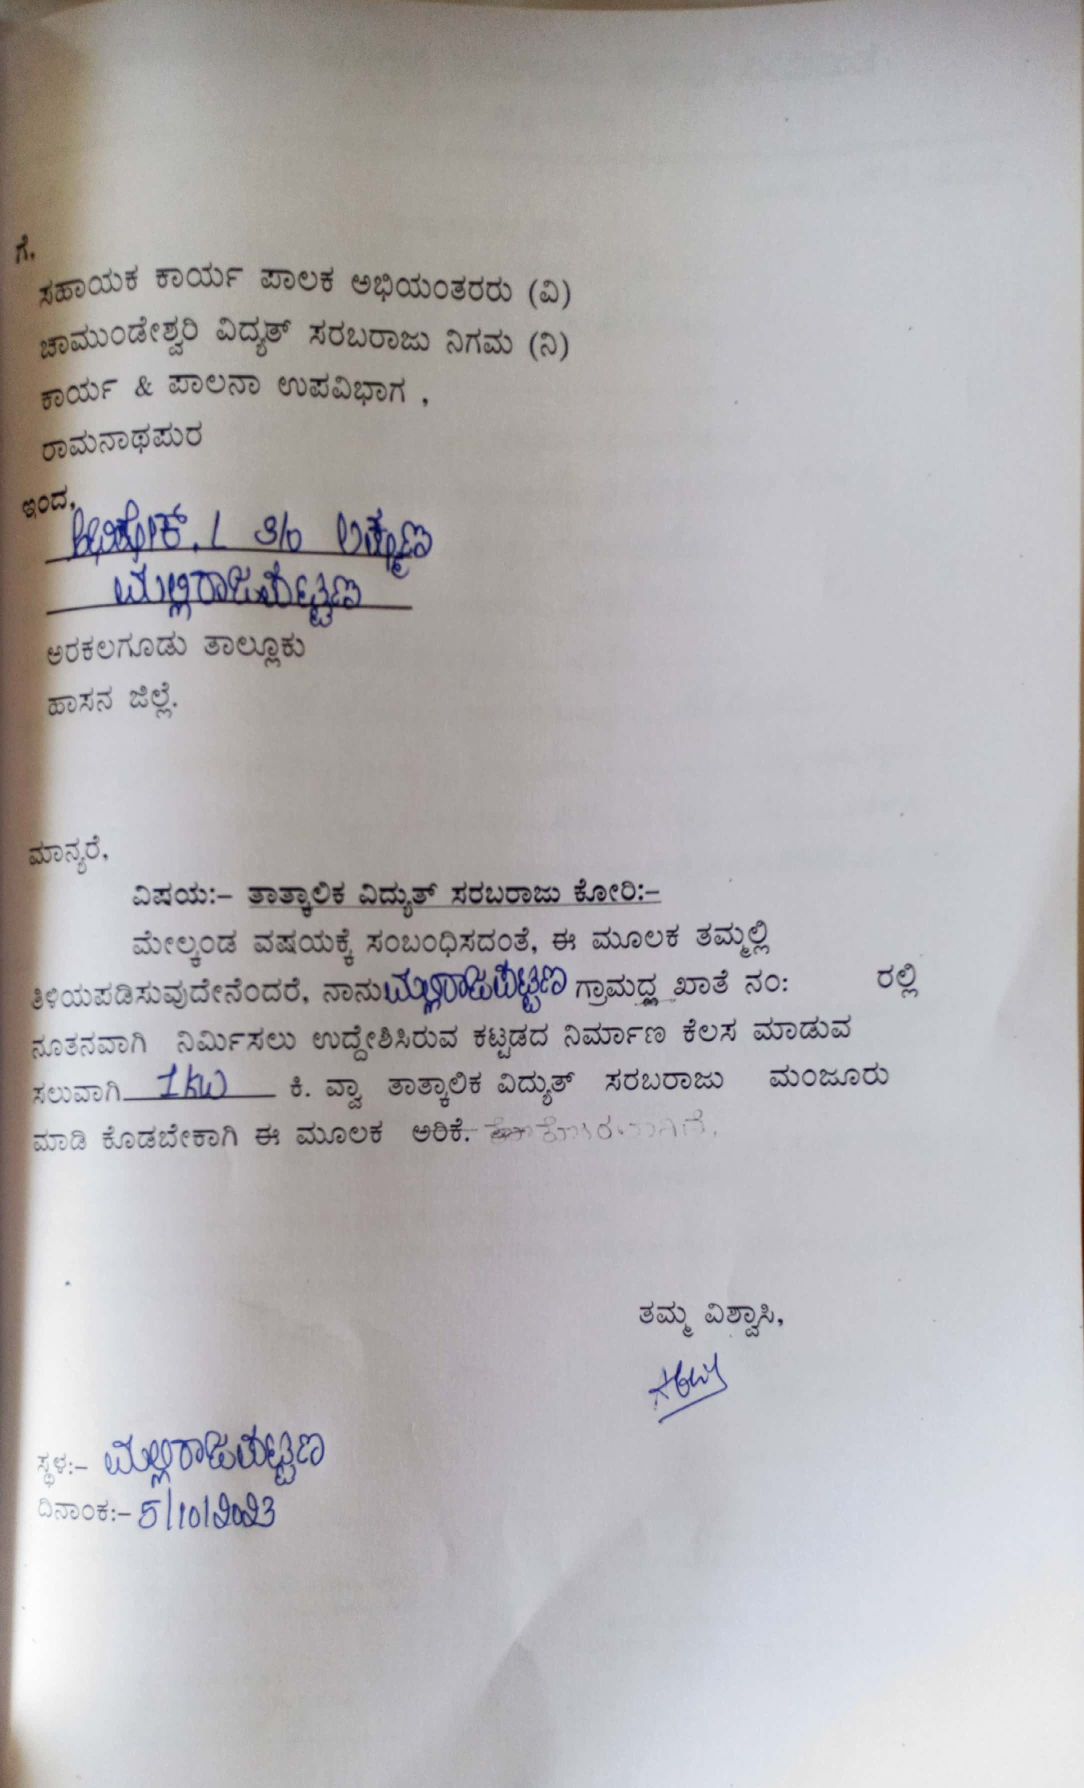 ಗೆ.
ಸಹಾಯಕ ಕಾರ್ಯ ಪಾಲಕ ಅಭಿಯಂತರರು (ವಿ)
ಚಾಮುಂಡೇಶ್ವರಿ ವಿದ್ಯುತ್ ಸರಬರಾಜು ನಿಗಮ (ನಿ)
ಕಾರ್ಯ & ಪಾಲನಾ ಉಪವಿಭಾಗ ,
ರಾಮನಾಥಪುರ
ಇಂದ,
S/o ಲಕ್ಷ್ಮಣ
ಮಲ್ಲಿರಾಜಪಟ್ಟಣ
ಅರಕಲಗೂಡು ತಾಲ್ಲೂಕು
ಹಾಸನ ಜಿಲ್ಲೆ.
ಮಾನ್ಯರೆ,
ವಿಷಯ:– ತಾತ್ಕಾಲಿಕ ವಿದ್ಯುತ್ ಸರಬರಾಜು ಕೋರಿ:–
ಮೇಲ್ಕಂಡ ವಷಯಕ್ಕೆ ಸಂಬಂಧಿಸದಂತೆ, ಈ ಮೂಲಕ ತಮ್ಮಲ್ಲಿ
ತಿಳಿಯಪಡಿಸುವುದೇನೆಂದರೆ, ನಾನು ಮಲ್ಲಿರಾಜಪಟ್ಟಣ ಗ್ರಾಮದ್ಲ ಖಾತೆ ನಂ: ರಲ್ಲಿ
ನೂತನವಾಗಿ ನಿರ್ಮಿಸಲು ಉದ್ದೇಶಿಸಿರುವ ಕಟ್ಟಡದ ನಿರ್ಮಾಣ ಕೆಲಸ ಮಾಡುವ
ಸಲುವಾಗಿ 1 KW ಕಿ. ವ್ವಾ ತಾತ್ಕಾಲಿಕ ವಿದ್ಯುತ್ ಸರಬರಾಜು ಮಂಜೂರು
ಮಾಡಿ ಕೊಡಬೇಕಾಗಿ ಈ ಮೂಲಕ ಅರಿಕೆ.
ತಮ್ಮ ವಿಶ್ವಾಸಿ,
ಸ್ಥಳ:– ಮಲ್ಲಿರಾಜಪಟ್ಟಣ
ದಿನಾಂಕ:– 5/10/2023